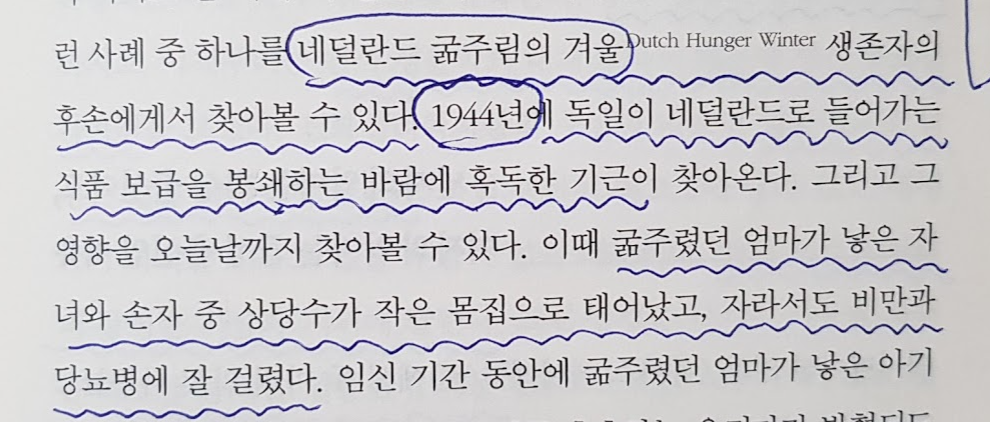 런 사례 중 하나를 네덜란드 굶주림의 겨울Dutch Hunger Winter 생존자의
후손에게서 찾아볼 수 있다. 1944년에 독일이 네덜란드로 들어가는
식품 보급을 봉쇄하는 바람에 혹독한 기근이 찾아온다. 그리고 그
영향을 오늘날까지 찾아볼 수 있다. 이때 굶주렸던 엄마가 낳은 자
녀와 손자 중 상당수가 작은 몸집으로 태어났고, 자라서도 비만과
당뇨병에 잘 걸렸다. 임신 기간 동안에 굶주렸던 엄마가 낳은 아기